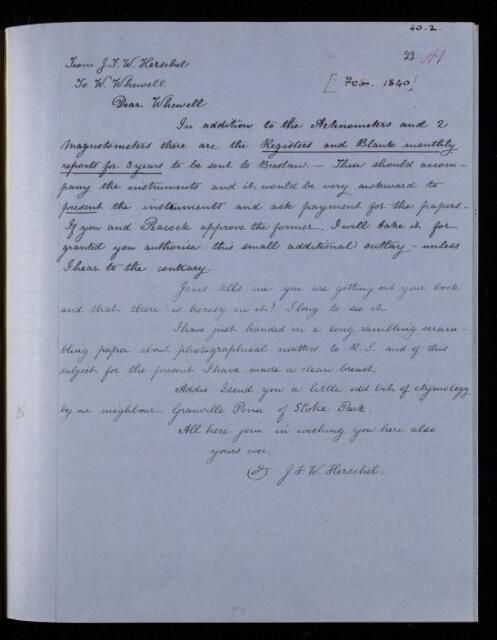 40.2.
22 41
From J. F. W. Herschel
[Feb. 1840]
To W. Whewell
Dear Whewell
In addition to the Actinometers and 2
Magnetometers there are the Registers and Blank monthly
reports for 3 years to be sent to Breslau. – These should accom-
pany the instruments and it would be very awkward to
present the instruments and ask payment for the papers –
If you and Peacock approve the former, I will take it for
granted you authorise this small additional outlay – unless
I hear to the contrary.
Jones tells me you are getting out your book
and that there is heresy in it! I long to see it.
I have just handed in a long rambling scram-
bling paper about photographical matters to R. S. and of this
subject for the present I have made a clean breast.
Addio I send you a little odd bit of etymology
by our neighbour Granville Penn of Stoke Park.
All here join in wishing you here also
yours ever
J. F. W. Herschel.
73